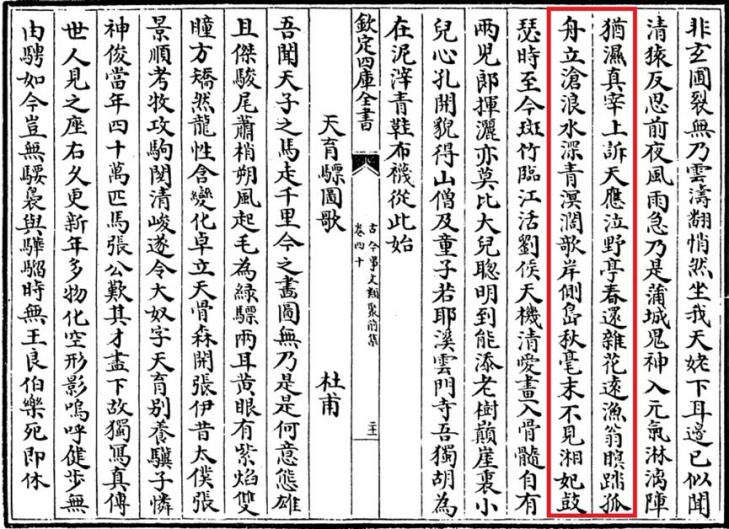 非玄圃裂無乃雲濤翻悄然坐我天姥下耳邊已似聞
清猿反思前夜風雨急乃是蒲城鬼神入元氣淋漓障
猶濕真宰上訴天應泣野亭春還雜花遠漁翁暝踏孤
舟立滄浪水深青溟濶歌岸側島秋毫末不見湘妃鼓
瑟時至今斑竹臨江活劉侯天機清愛畫入骨髓自有
兩兒郎揮灑亦莫比大兒聰明到能添老樹巔崖裏小
兒心孔開貌得山僧及童子若耶溪雲門寺吾獨胡為
在泥滓青鞋布襪從此始
欽定四庫全書
古今事文類聚前集
卷四十
天育驃圖歌 杜甫
吾聞天子之馬走千里今之畫圖無乃是是何意態雄
且傑駿尾蕭梢朔風起毛為綠驃兩耳黃眼有紫焰雙
瞳方矯然龍性含變化卓立天骨森開張伊昔太僕張
景順考牧攻駒閱清峻遂令大奴字天育別養驥子憐
神俊當年四十萬匹馬張公歎其才盡下故獨寫真傳
世人見之座右久更新年多物化空形影嗚呼健步無
由騁如今豈無騕褭與驊騮時無王良伯樂死即休